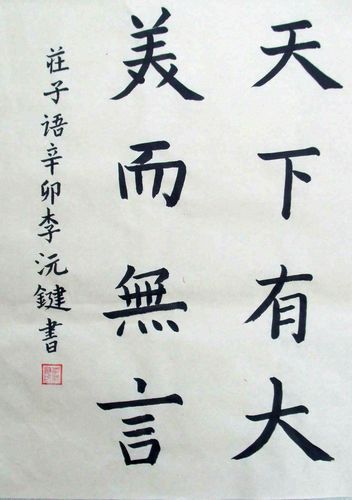 天下有大
美而無言
莊子语辛卯李沅鍵書